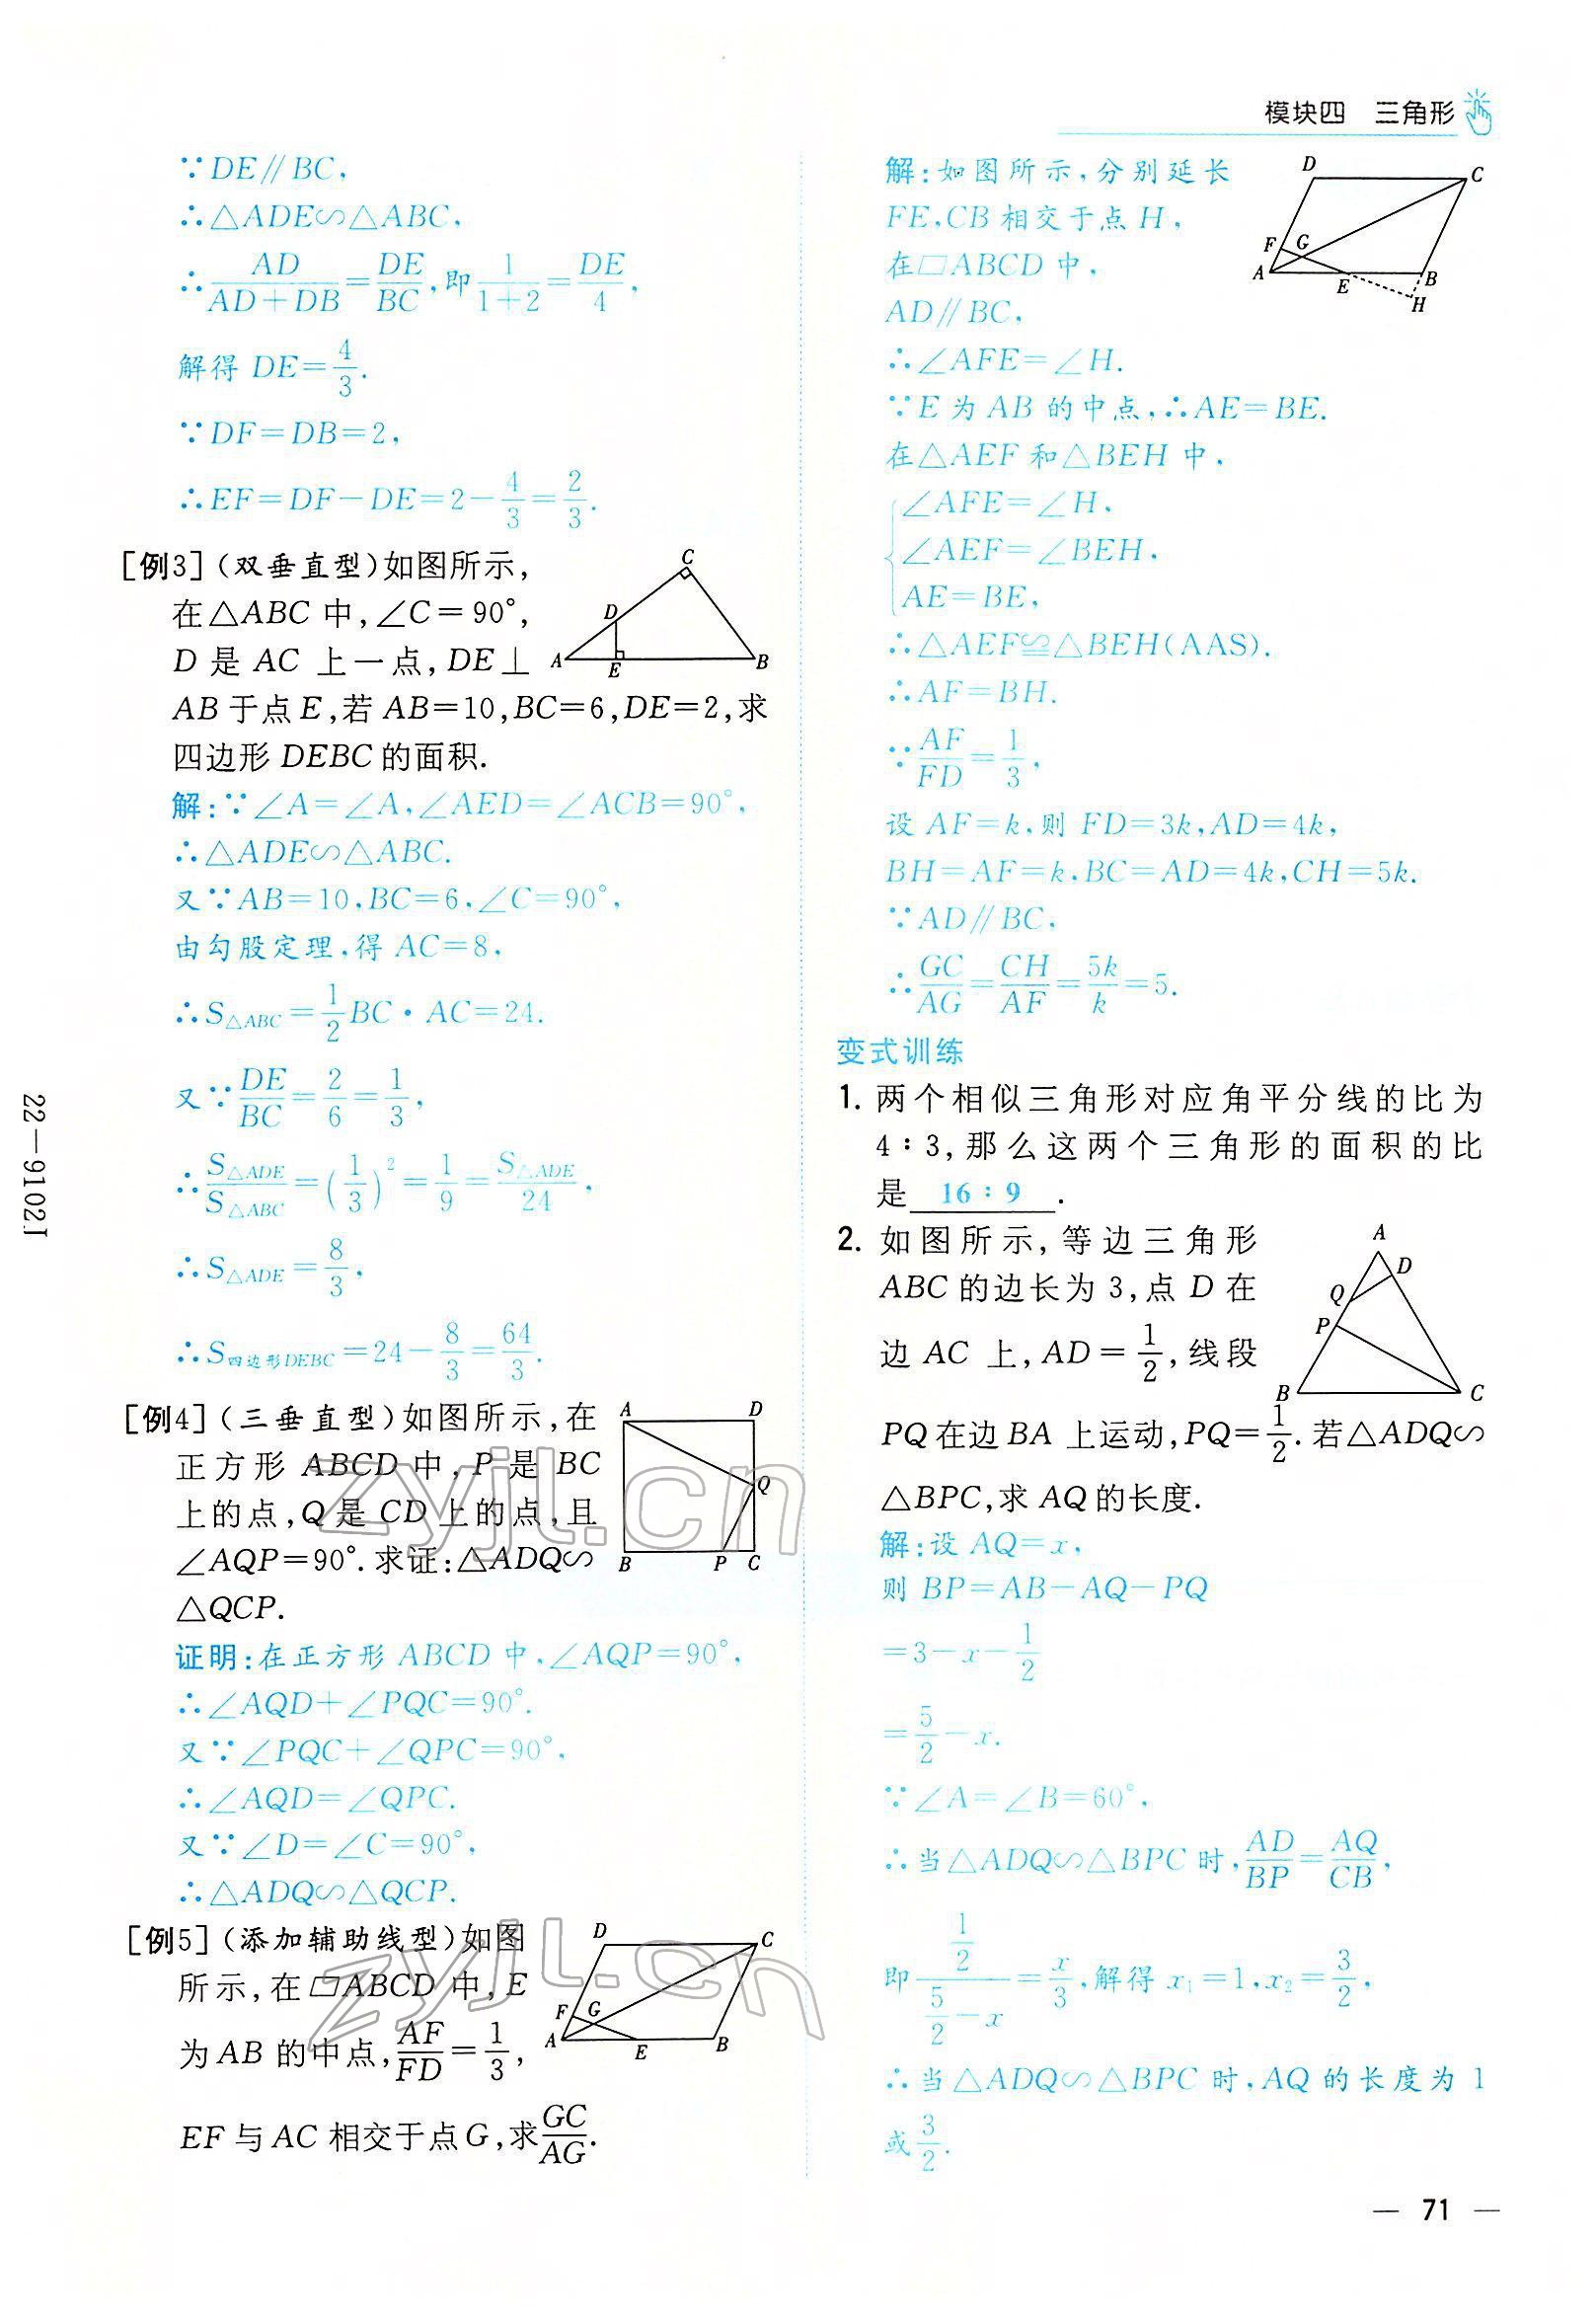 模块四 三角形
∵DE∥BC,
∴△ADE∽△ABC,
∴AD/(AD+DB)=DE/BC,即1/(1+2)=DE/4,
解得 DE=4/3.
∵DF=DB=2,
∴EF=DF-DE=2-4/3=2/3.
[例3](双垂直型)如图所示,
在△ABC 中,∠C=90°,
D 是 AC 上一点,DE⊥
AB 于点E,若 AB=10,BC=6,DE=2,求
四边形 DEBC 的面积.
C
D
A
E
B
解:∵∠A=∠A,∠AED=∠ACB=90°,
∴△ADE∽△ABC.
又∵AB=10,BC=6,∠C=90°,
由勾股定理,得 AC=8,
∴S△ABC=1/2BC·AC=24.
又∵DE/BC=2/6=1/3,
∴S△ADE/S△ABC=(1/3)²=1/9=S△ADE/24,
∴S△ADE=8/3,
∴S四边形DEBC=24-8/3=64/3.
[例4](三垂直型)如图所示,在
正方形 ABCD 中,P 是 BC
上的点,Q 是 CD 上的点,且
∠AQP=90°.求证:△ADQ∽
△QCP.
A D
Q
B P C
证明:在正方形 ABCD 中,∠AQP=90°,
∴∠AQD+∠PQC=90°.
又∵∠PQC+∠QPC=90°,
∴∠AQD=∠QPC.
又∵∠D=∠C=90°,
∴△ADQ∽△QCP.
[例5](添加辅助线型)如图
所示,在▱ABCD 中,E
为AB 的中点,AF/FD=1/3,
EF 与 AC 相交于点G,求GC/AG.
D C
F G
A E B
解:如图所示,分别延长
FE,CB 相交于点 H,
在▱ABCD 中,
AD∥BC,
D C
F G
A E B
H
∴∠AFE=∠H.
∵E 为 AB 的中点,∴AE=BE.
在△AEF 和△BEH 中,
{∠AFE=∠H,
∠AEF=∠BEH,
AE=BE,
∴△AEF≌△BEH(AAS).
∴AF=BH.
∵AF/FD=1/3,
设 AF=k,则 FD=3k,AD=4k,
BH=AF=k,BC=AD=4k,CH=5k.
∵AD∥BC,
∴GC/AG=CH/AF=5k/k=5.
变式训练
1. 两个相似三角形对应角平分线的比为
4∶3,那么这两个三角形的面积的比
是 16∶9 .
2. 如图所示,等边三角形
ABC 的边长为 3,点 D 在
边 AC 上,AD=1/2,线段
PQ 在边 BA 上运动,PQ=1/2.若△ADQ∽
△BPC,求 AQ 的长度.
A
D
Q
P
B C
解:设 AQ=x,
则 BP=AB-AQ-PQ
=3-x-1/2
=5/2-x.
∵∠A=∠B=60°,
∴当△ADQ∽△BPC 时,AD/BP=AQ/CB,
即(1/2)/(5/2-x)=x/3,解得 x₁=1,x₂=3/2,
∴当△ADQ∽△BPC 时,AQ 的长度为 1
或3/2.
22—9102J
zyjl.cn
zyjl.cn
— 71 —